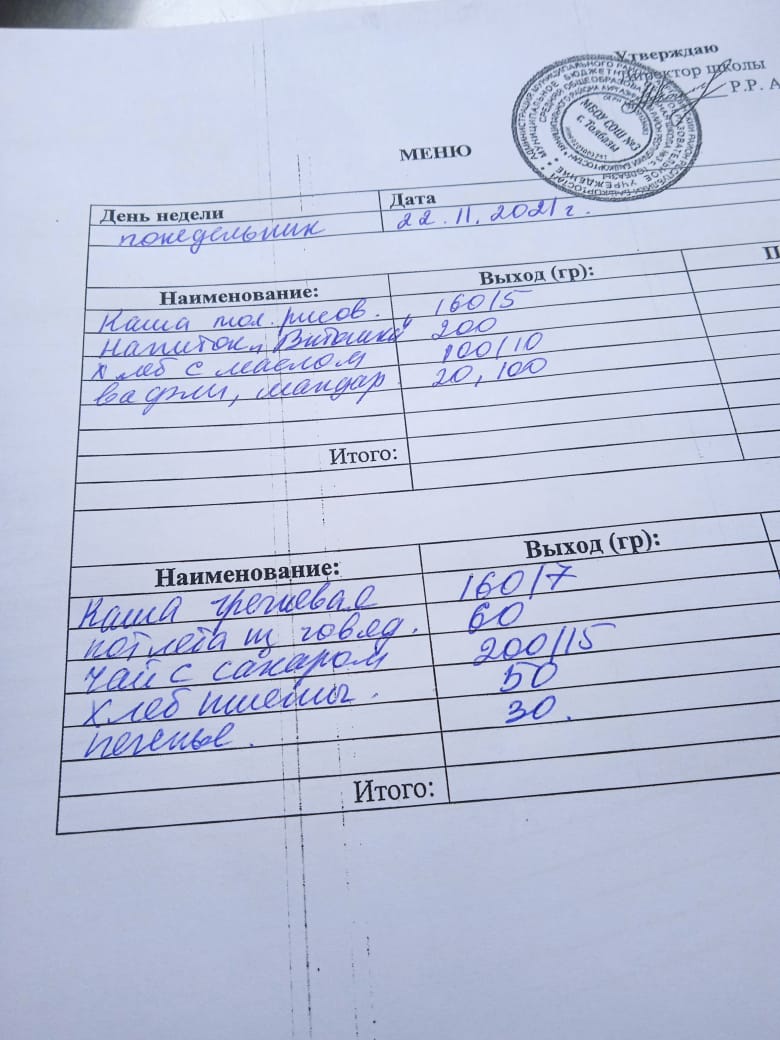 Утверждаю
Директор школы
Р.Р. А
МБОУ СОШ №2
с. Толбазы
МЕНЮ
День недели Дата
понедельник 22.11.2021 г.
Наименование: Выход (гр): П
Каша мол. рисов. 160/5
напиток „Витошка" 200
хлеб с маслом 100/10
вафли, мандар. 20, 100
Итого:
Наименование: Выход (гр):
Каша гречневая 160/7
котлета из говяд. 60
чай с сахаром 200/15
хлеб пшеничн. 50
печенье. 30.
Итого: